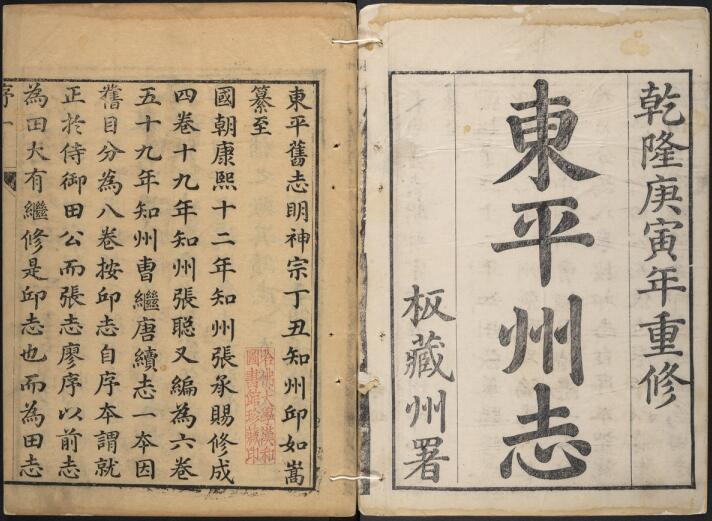 乾隆庚寅年重修
東平州志
板藏州署
東平舊志明神宗丁丑知州邱如嵩
纂至
國朝康熙十二年知州張承賜修成
四卷十九年知州張聰又編為六卷
五十九年知州曹繼唐續志一本因
舊目分為八卷按邱志自序本謂就
正於侍御田公而張志廖序以前志
為田大有繼修是邱志也而為田志
序一
哈佛大學漢和
圖書館珍藏印